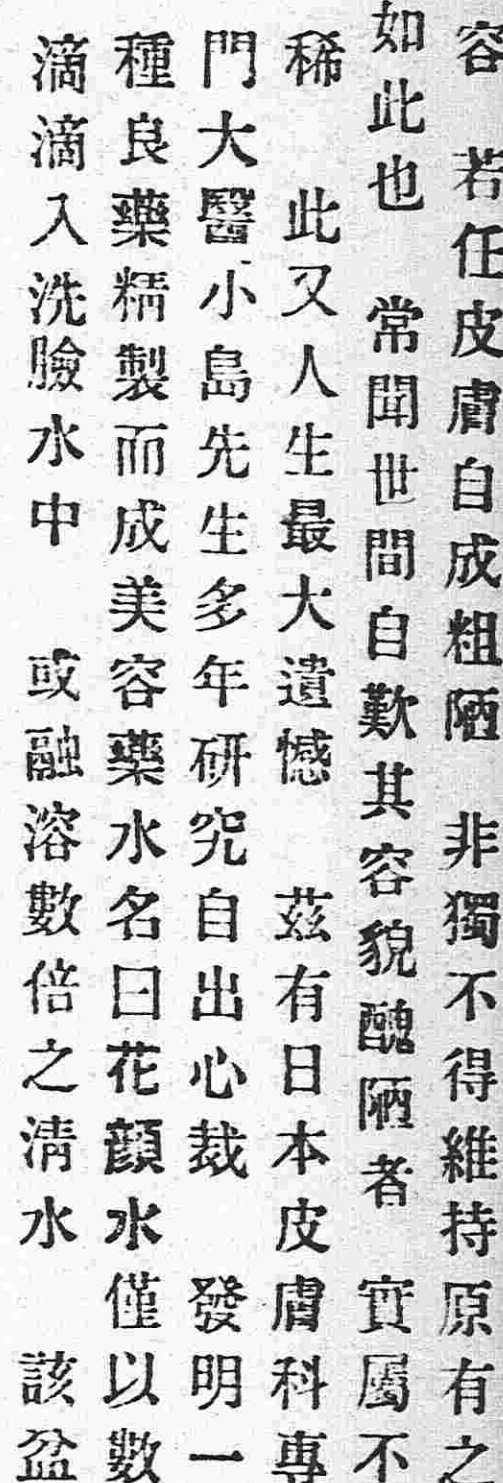 容　若任皮膚自成粗陋　非獨不得維持原有之
如此也　常聞世間自歎其容貌醜陋者　實屬不
稀　此又人生最大遺憾　茲有日本皮膚科專
門大醫小島先生多年硏究自出心裁　發明一
種良藥精製而成美容藥水名曰花顏水僅以數
滴滴入洗臉水中　或融溶數倍之淸水　該盆